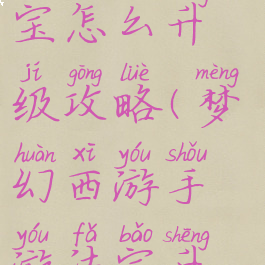 宝怎么升
jí gōng lüè mèng
级攻略(梦
huàn xī yóu shǒu
幻西游手
yóu fǎ bǎo shēng
游法宝升